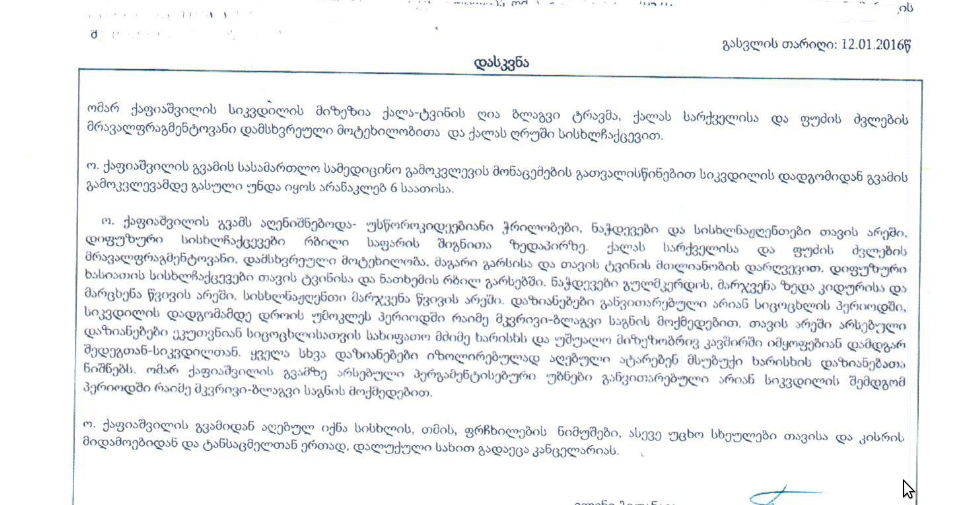 გასვლის თარიღი: 12.01.2016წ
დასკვნა
ომარ ქაფიაშვილის სიკვდილის მიზეზია ქალა-ტვინის ღია ბლაგვი ტრავმა, ქალას სარქველისა და ფუძის ძვლების
მრავალფრაგმენტოვანი დამსხვრეული მოტეხილობითა და ქალას ღრუში სისხლჩაქცევით.
ო. ქაფიაშვილის გვამის სასამართლო სამედიცინო გამოკვლევის მონაცემების გათვალისწინებით სიკვდილის დადგომიდან გვამის
გამოკვლევამდე გასული უნდა იყოს არანაკლებ 6 საათისა.
ო. ქაფიაშვილის გვამს აღენიშნებოდა- უსწოროკიდეებიანი ჭრილობები, ნაჭდევები და სისხლნაჟღენთები თავის არეში,
დიფუზური სისხლჩაქცევები რბილი საფარის შიგნითა ზედაპირზე. ქალას სარქველისა და ფუძის ძვლების
მრავალფრაგმენტოვანი, დამსხვრეული მოტეხილობა, მაგარი გარსისა და თავის ტვინის მთლიანობის დარღვევით, დიფუზური
ხასიათის სისხლჩაქცევები თავის ტვინისა და ნათხემის რბილ გარსებში. ნაჭდევები გულმკერდის, მარჯვენა ზედა კიდურისა და
მარცხენა წვივის არეში, სისხლნაჟღენთი მარჯვენა წვივის არეში. დაზიანებები განვითარებული არიან სიცოცხლის პერიოდში,
სიკვდილის დადგომამდე დროის უმოკლეს პერიოდში რაიმე მკვრივი-ბლაგვი საგნის მოქმედებით. თავის არეში არსებული
დაზიანებები ეკუთვნიან სიცოცხლისათვის სახიფათო მძიმე ხარისხს და უშუალო მიზეზობრივ კავშირში იმყოფებიან დამდგარ
შედეგთან-სიკვდილთან. ყველა სხვა დაზიანებები იზოლირებულად აღებული ატარებენ მსუბუქი ხარისხის დაზიანებათა
ნიშნებს. ომარ ქაფიაშვილის გვამზე არსებული პერგამენტისებური უბნები განვითარებული არიან სიკვდილის შემდგომ
პერიოდში რაიმე მკვრივი-ბლაგვი საგნის მოქმედებით.
ო. ქაფიაშვილის გვამიდან აღებულ იქნა სისხლის, თმის, ფრჩხილების ნიმუშები, ასევე უცხო სხეულები თავისა და კისრის
მიდამოებიდან და ტანსაცმელთან ერთად, დალუქული სახით გადაეცა კანცელარიას.